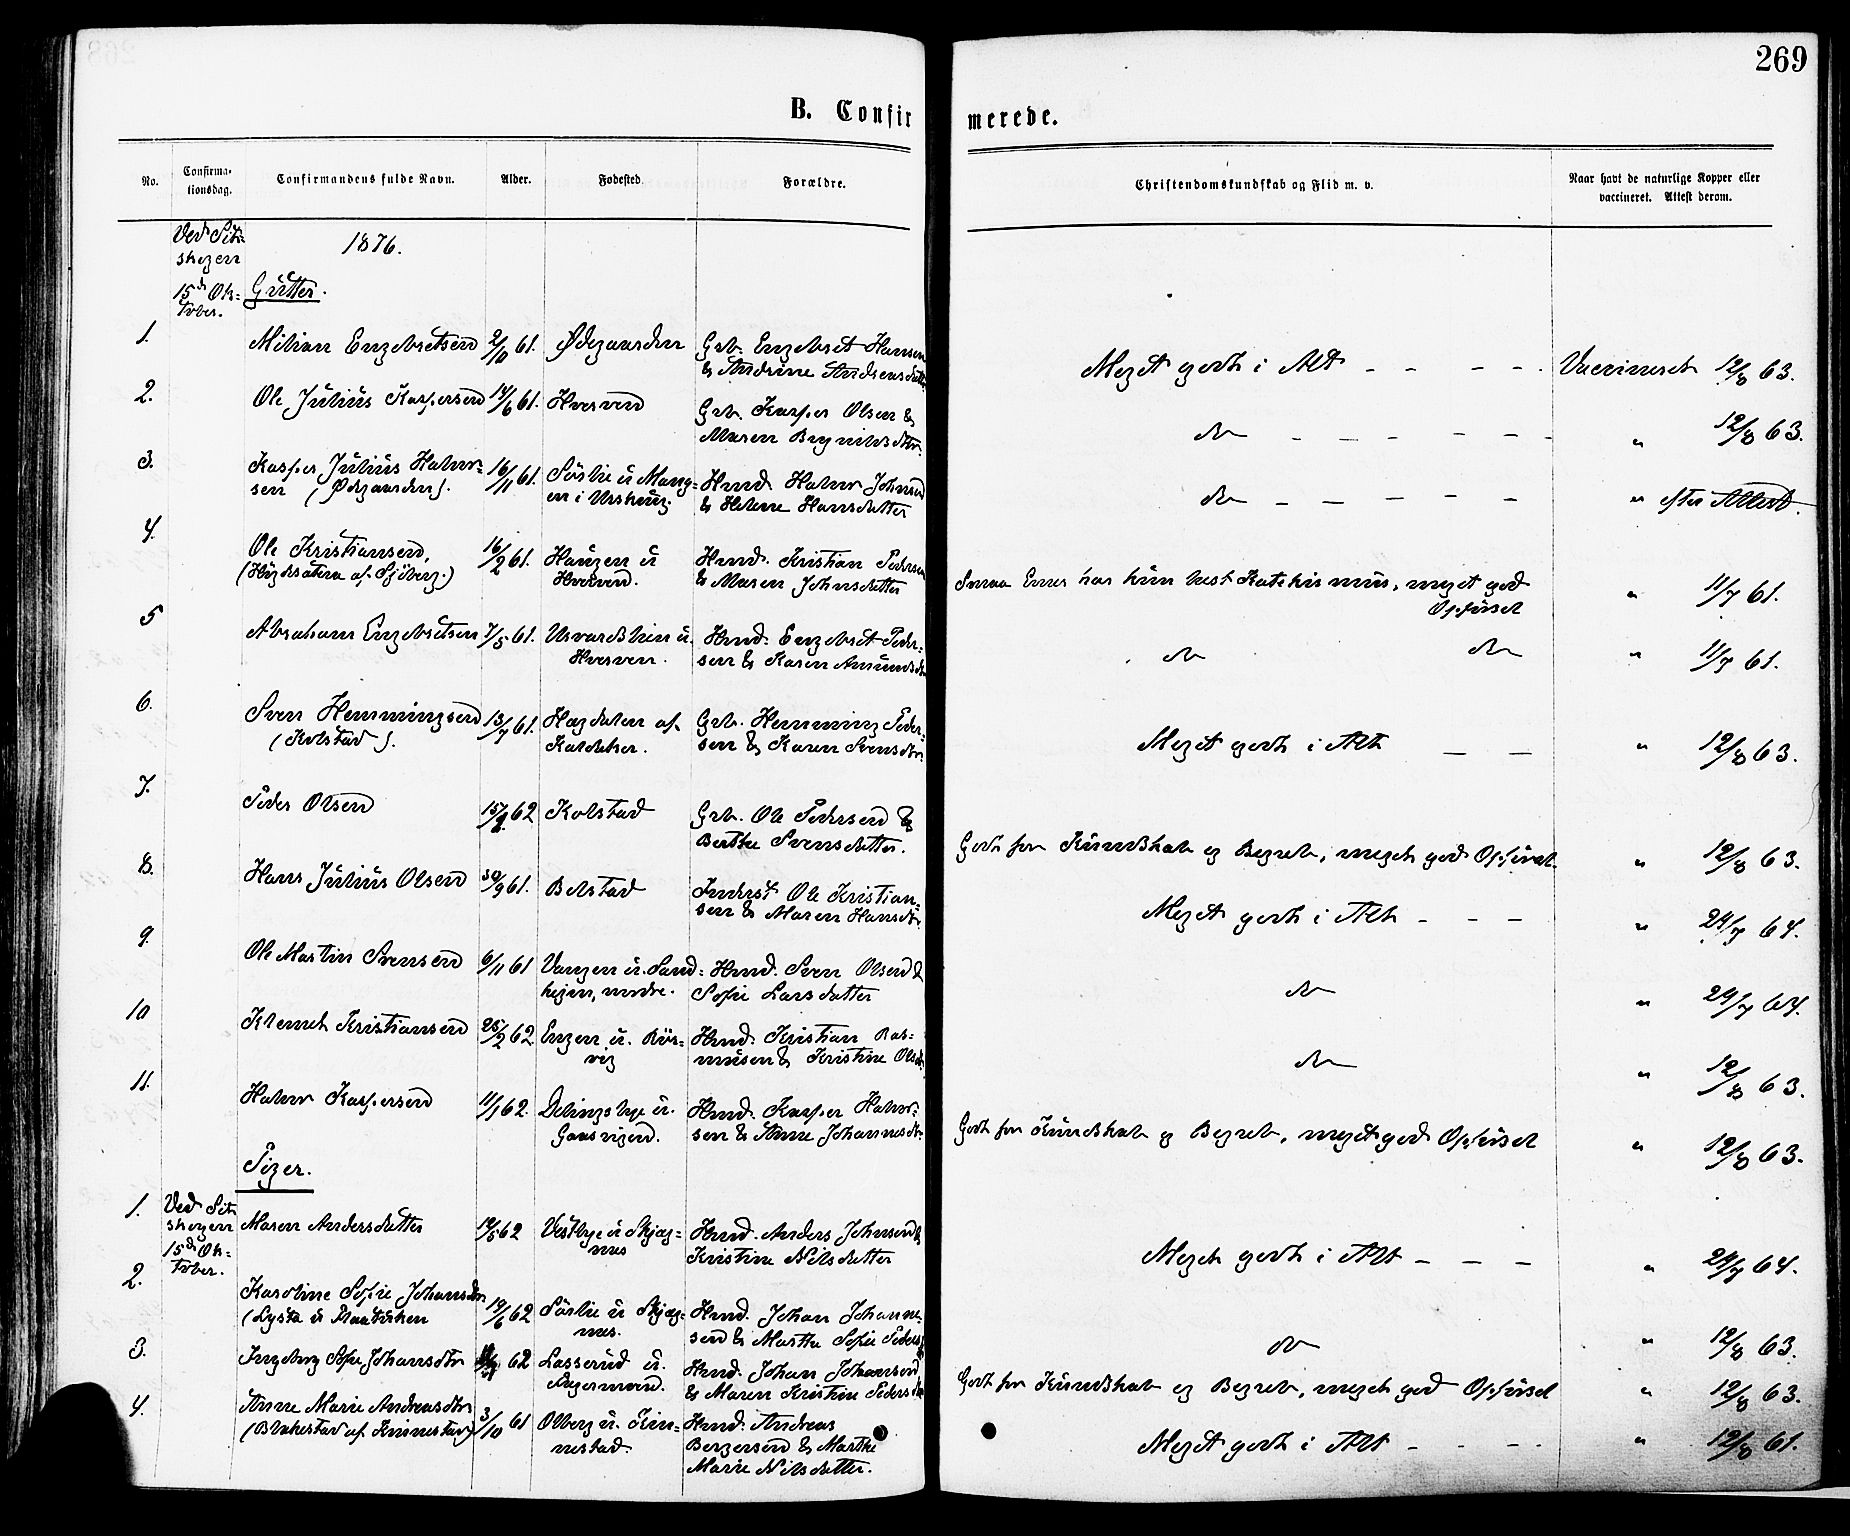 269
B. Confirmerede.
No.
Confirma-
tionsdag.
Confirmandens fulde Navn.
Alder.
Fødested.
Forældre.
Christendomskundskab og Flid m. v.
Naar havt de naturlige Kopper eller
vaccineret. Attest derom.
Ved
skogen
1876.
15de Ok-
tober.
Gutter.
1. Milian Engebretsen 2/10 61. Ødegaarden Grb. Engebret Hansen
& Andrine Andreasdatter
Meget godt i Alt - - - - Vaccineret 12/8 63.
2. Ole Julius Kaspersen 14/6 61. Hverven Grb. Kasper Olsen &
Maren Brynildsdtr.
do - - - - - - " 12/8 63.
3. Kasper Julius Halvor-
sen (Ødegaarden). 16/11 61. Sørlie u Mang-
en i Urskoug. Hmd. Halvor Johnsen
& Helene Hansdatter
do - - - - - - " efter Attest.
4. Ole Kristiansen,
(Høgdesætra af Sjøberg.) 16/2 61. Haugen u
Hverven. Hmd. Kristian Pedersen
& Maren Johnsdatter
Svend Evner har kun læst Katekismus, meget god
Opførsel " 11/7 61.
5 Abraham Engebretsen 7/5 61. u.
Hverven. Hmd. Engebret Peder-
sen & Karen Amundsd
do do " 11/7 61.
6. Sven Hemmingsen
(Kolstad). 13/7 61. af
Grb. Hemming Peder-
sen & Karen Svensdtr.
Meget godt i Alt - - " 12/8 63.
7. Peder Olsen 15/1 62 Kolstad Grb. Ole Pedersen &
Berthe Svensdatter.
Godt for Kundskab og Begreb, meget god Opførsel " 12/8 63.
8. Hans Julius Olsen 30/9 61. Bolstad Inderst Ole Kristian-
sen & Maren Hansdtr.
Meget godt i Alt - - - " 24/7 64.
9. Ole Martin Svensen 6/11 61 Vangen u. Sand-
nordre. Hmd. Sven Olsen &
Sofie Larsdatter
do " 24/7 64.
10 Klemet Kristiansen 25/2 62 Engen u. Rør-
vig Hmd. Kristian Ras-
musen & Kristine Olsd
do " 12/8 63.
11. Halvor Kaspersen 11/1 62. u.
Gaasvigen. Hmd. Kasper Halvor-
sen & Anne Johannesdtr.
Godt for Kundskab og Begreb, meget god Opførsel " 12/8 63.
Piger.
1. Ved Set-
skogen
15de Ok-
tober.
Maren Andersdatter 19/5 62 Vestbye u Skjæg-
nes Hmd. Anders Johnsen &
Kristine Nilsdatter
Meget godt i Alt - - - " 24/7 64.
2. Karoline Sofie Johansdtr
14/6 62 Sørlie u Skjæg-
nes. Hmd. Johan Johanne-
sen & Marthe Sofie Peders
do " 12/8 63.
3. Ingeborg Sofie Johansdtr 62 Lasserud u.
Hmd. Johan Johansen
& Maren Kristine Pedersd
Godt for Kundskab og Begreb, meget god Opførsel " 12/8 63.
4. Anne Marie Andreasdtr
(Blakestad af Kinnestad) 3/10 61 Olberg u. Kin-
nestad. Hmd. Andreas
Bergersen & Marthe
Marie Nilsdatter.
Meget godt i Alt - - - - " 12/8 61.